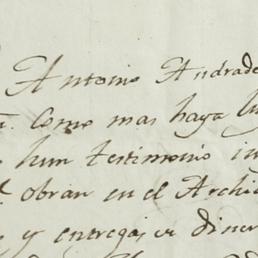 Antonio Andrade
como mas haya lu
hun testimonio in
obran en el Archi
y entregas en diner